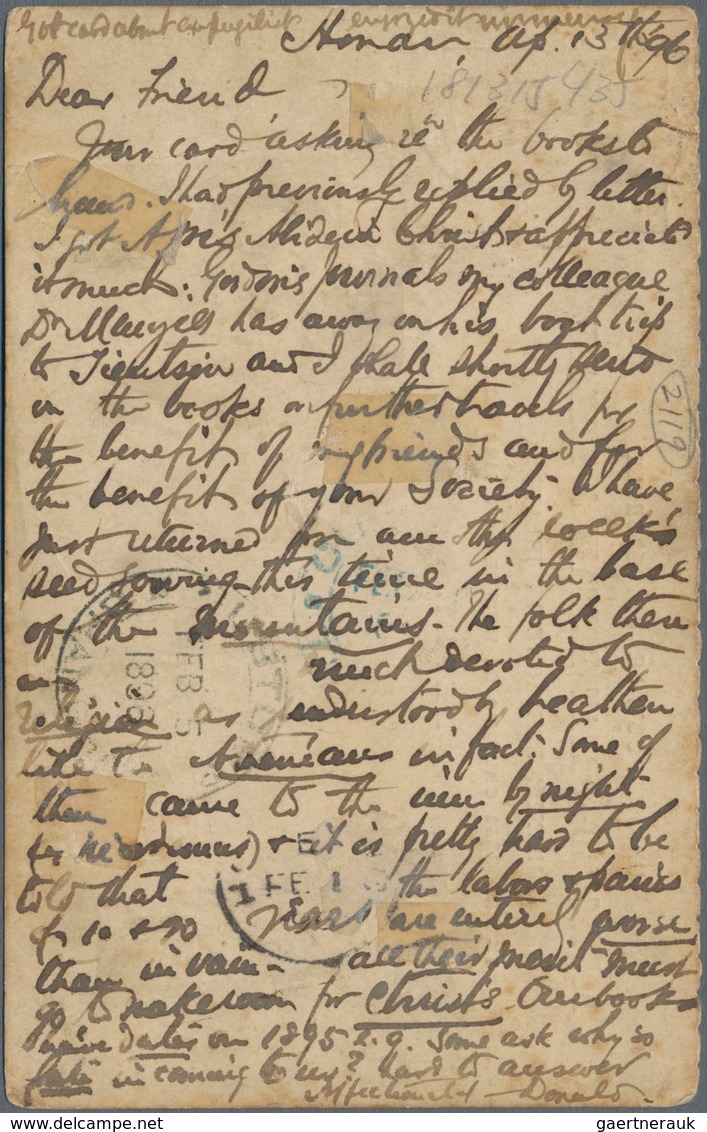 Got card about
Honan, Ap. 13th 96
181315435
Dear Friend
Your card asking re the books to
hand. I had previously replied by letter.
I got Christ & appreciate
it much: Gordon's journals my colleague
Dr has away on his boat trip
to Tientsin and I shall shortly send
on the books on further travels for
the benefit of my friends and for
2119
the benefit of your Society. I have
just returned from a week's
seed sowing this time in the base
of the mountains. The folk there
much devoted to
as understood by heathen
like the in fact. Some of
them came to the inn by night
(as ) & it is pretty hard to be
told that the labors & pains
of 10 & 20 years are entirely worse
than in vain - all their merit must
go to make room for Christ's. Our books
have dates on 1895 e.g. Some ask why so
late in coming to us? Hard to answer
Affectionately Donald.
FEB 5
1896
FE 1
gaertnerauk